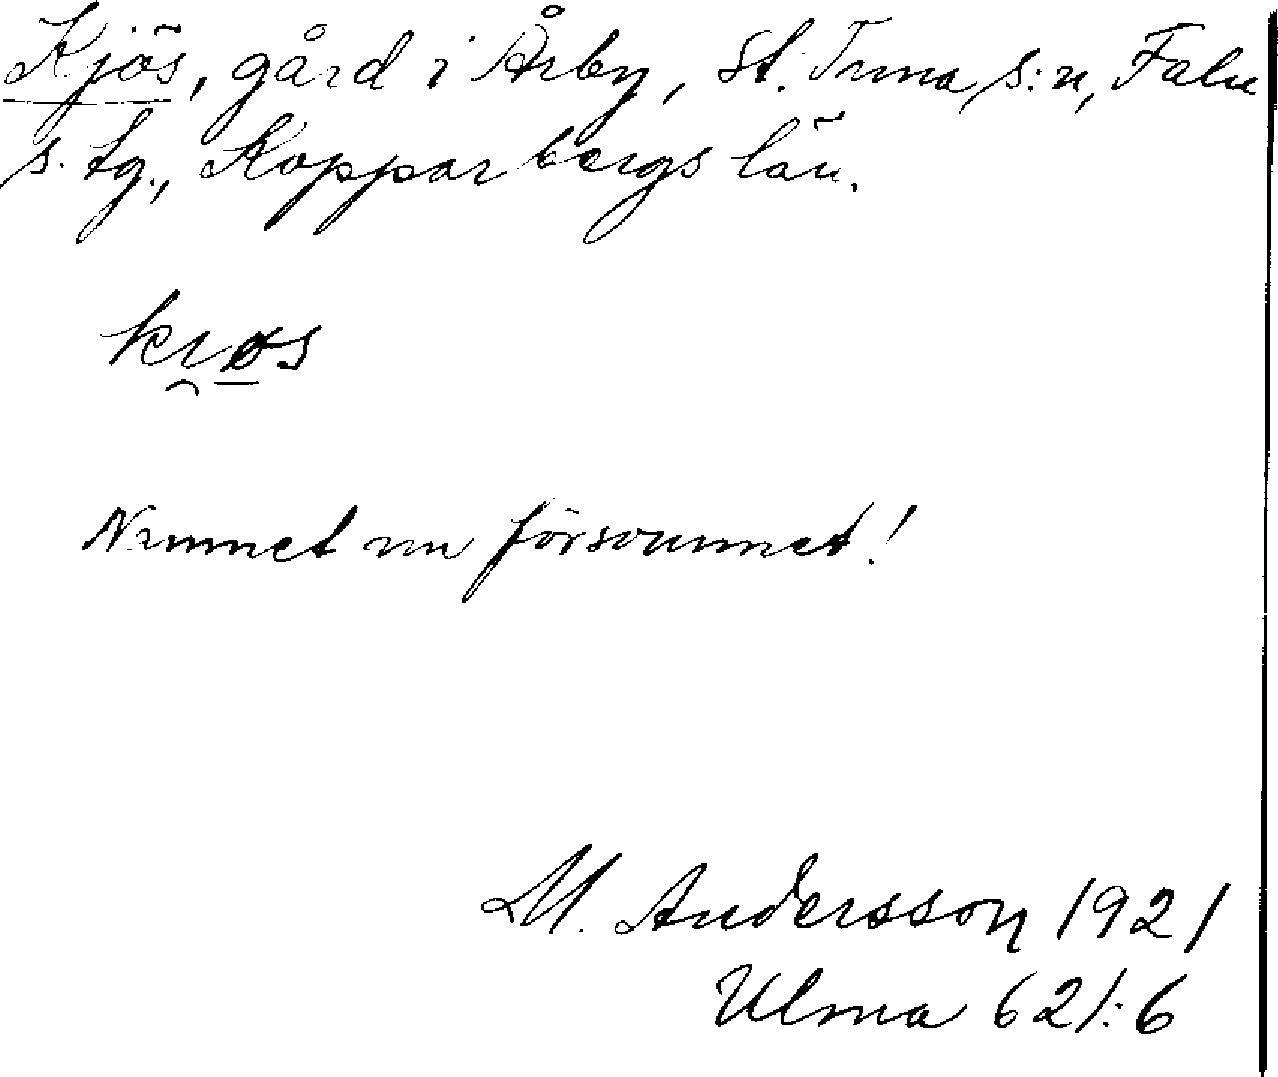 Kjös, gård i Årby, St. Tuna s:n, Falu
s. tg., Kopparbergs län.
kı̯øs
Namnet nu försvunnet!
M. Andersson 1921
Ulma 621:6